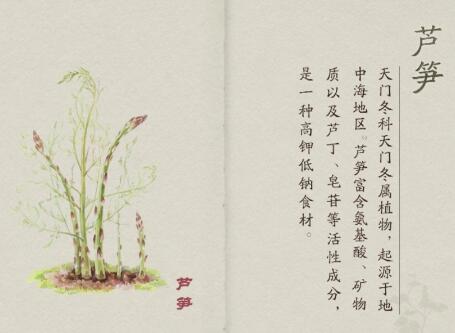 芦笋
天门冬科天门冬属植物，起源于地
中海地区。芦笋富含氨基酸、矿物
质以及芦丁、皂苷等活性成分，
是一种高钾低钠食材。
芦笋